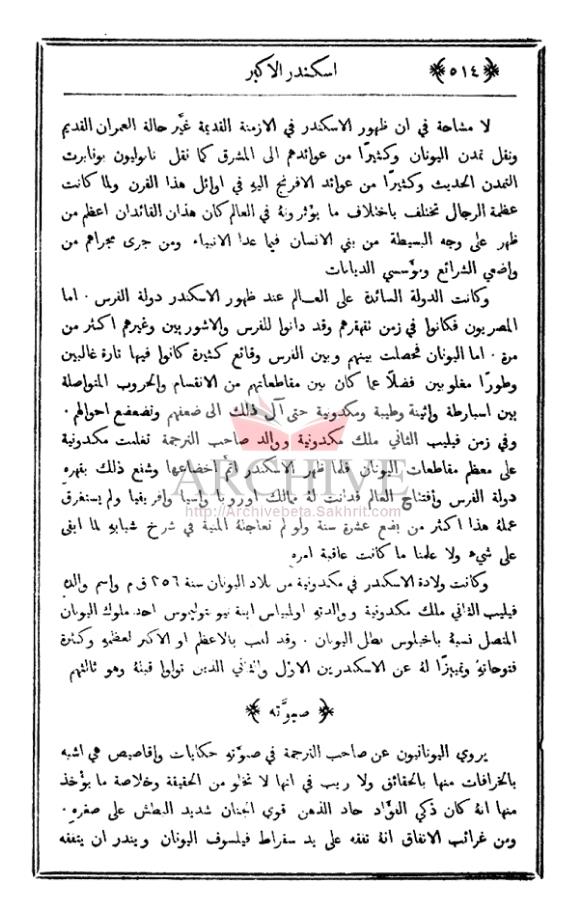 ﴿٥١٤﴾ اسكندر الاكبر
لا مشاحة في ان ظهور الاسكندر في الازمنة القديمة غيَّر حالة العمران القديم
ونقل تمدن اليونان وكثيرًا من عوائدهم الى المشرق كما نقل نابوليون بونابرت
التمدن الحديث وكثيرًا من عوائد الافرنج اليهِ في اوائل هذا القرن ولما كانت
عظمة الرجال تختلف باختلاف ما يؤثرونهُ في العالم كان هذان القائدان اعظم من
ظهر على وجه البسيطة من بني الانسان فيما عدا الانبياء ومن جرى مجراهم من
واضعي الشرائع ومؤسسي الديانات
وكانت الدولة السائدة على العـالم عند ظهور الاسكندر دولة الفرس . اما
المصريون فكانوا في زمن تقهقرهم وقد دانوا للفرس والاشوريين وغيرهم اكثر من
مرة . اما اليونان فحصلت بينهم وبين الفرس وقائع كثيرة كانوا فيها تارة غالبين
وطورًا مغلوبين فضلًا عما كان بين مقاطعاتهم من الانقسام والحروب المتواصلة
بين اسبارطة واثينة وطيبة ومكدونية حتى آل ذلك الى ضعفهم وتضعضع احوالهم .
وفي زمن فيليب الثاني ملك مكدونية ووالد صاحب الترجمة تغلبت مكدونية
على معظم مقاطعات اليونان فلما ظهر الاسكندر اتمَّ اخضاعها وشفع ذلك بقهره
دولة الفرس وافتتاح العالم فدانت لهُ ممالك اوروبا واسيا وافريقيا ولم يستغرق
عملهُ هذا اكثر من بضع عشرة سنة ولو لم تعاجلهُ المنية في شرخ شبابهِ لما ابقى
على شيءٍ ولا علمنا ما كانت عاقبة امرهِ
وكانت ولادة الاسكندر في مكدونية من بلاد اليونان سنة ٢٥٦ ق م واسم والدهِ
فيليب الثاني ملك مكدونية ووالدتهِ اولمبياس ابنة نيوبتوليموس احد ملوك اليونان
المتصل نسبهُ باخيلوس بطل اليونان . وقد لقب بالاعظم او الاكبر لعظمهِ وكثرة
فتوحاتهِ وتمييزًا لهُ عن الاسكندرين الاول والثاني الذين تولوا قبلهُ وهو ثالثهم
﴿ صبوَّته ﴾
يروي اليونانيون عن صاحب الترجمة في صبوَّتهِ حكايات واقاصيص هي اشبه
بالخرافات منها بالحقائق ولا ريب في انها لا تخلو من الحقيقة وخلاصة ما يؤخذ
منها انهُ كان ذكي الفؤاد حاد الذهن قوي الجنان شديد البطش على صغرهِ .
ومن غرائب الاتفاق انهُ تفقه على يد سقراط فيلسوف اليونان ويندر ان يتفقه
ARCHIVE
http://Archivebeta.Sakhrit.com